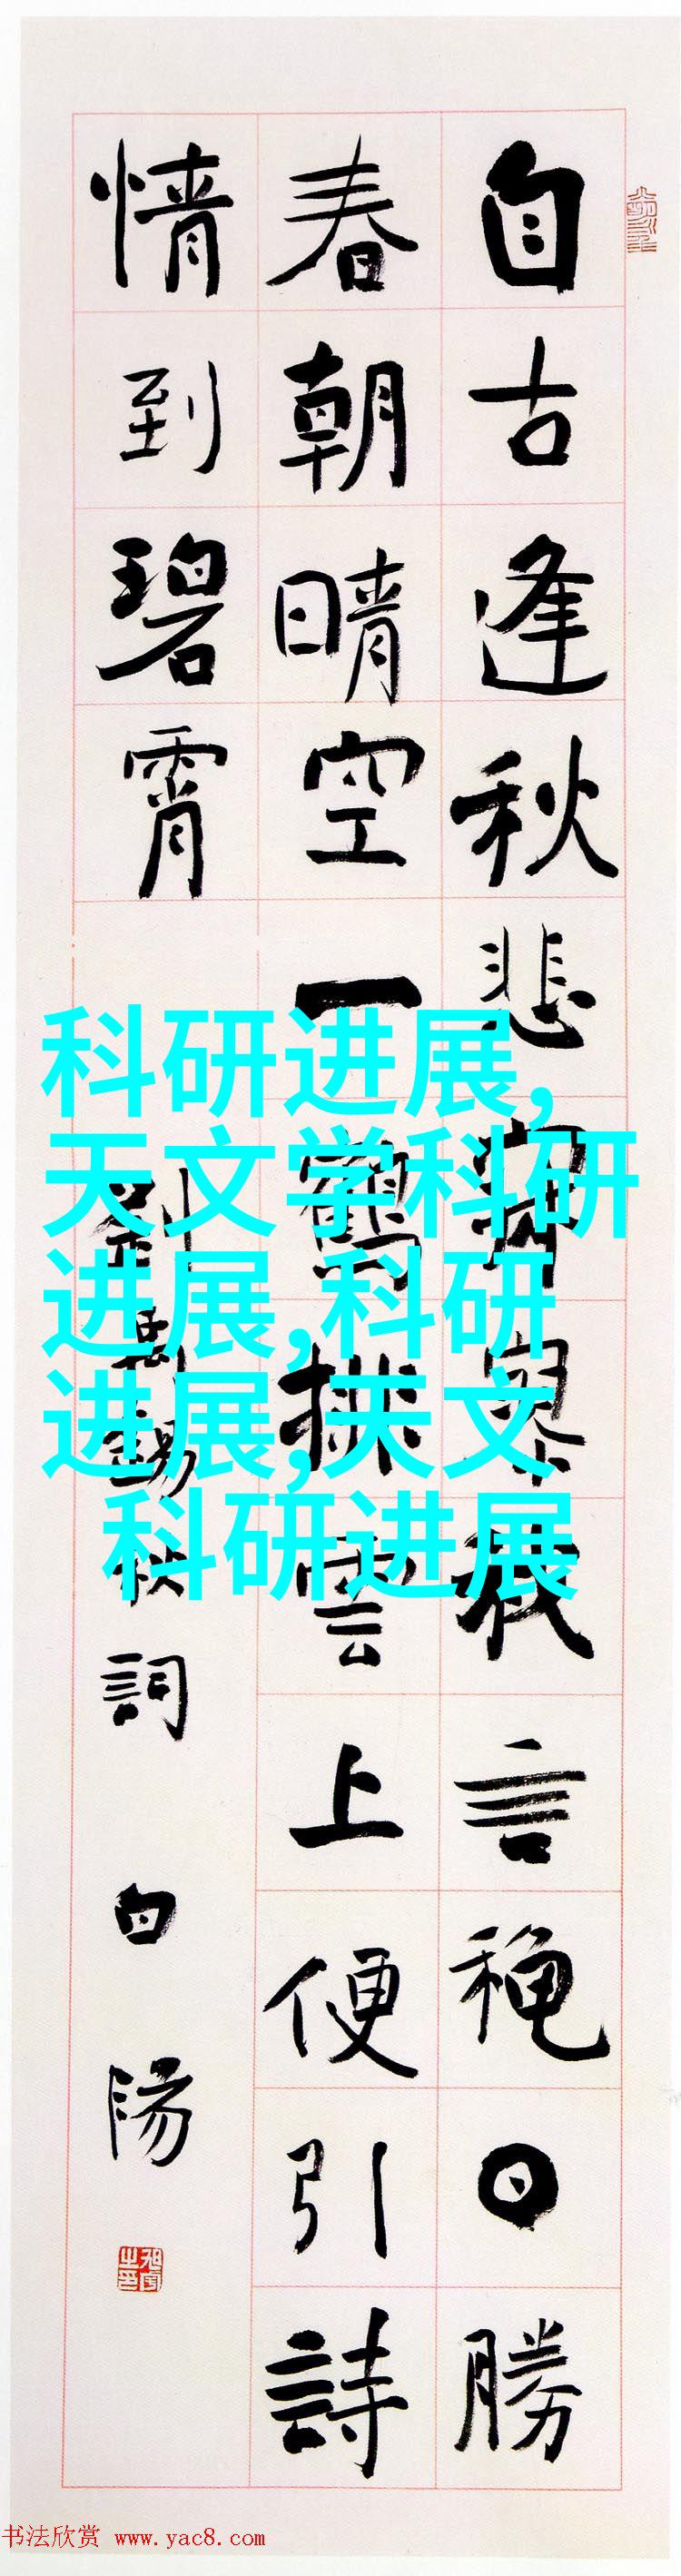 自古逢秋悲寂寥我言秋日勝
春朝晴空一鶴排雲上便引詩
情到碧霄
劉禹錫秋詞 白陽
科研进展,
天文学科研
进展,科研
进展,天文
科研进展
书法欣赏 www.yac8.com